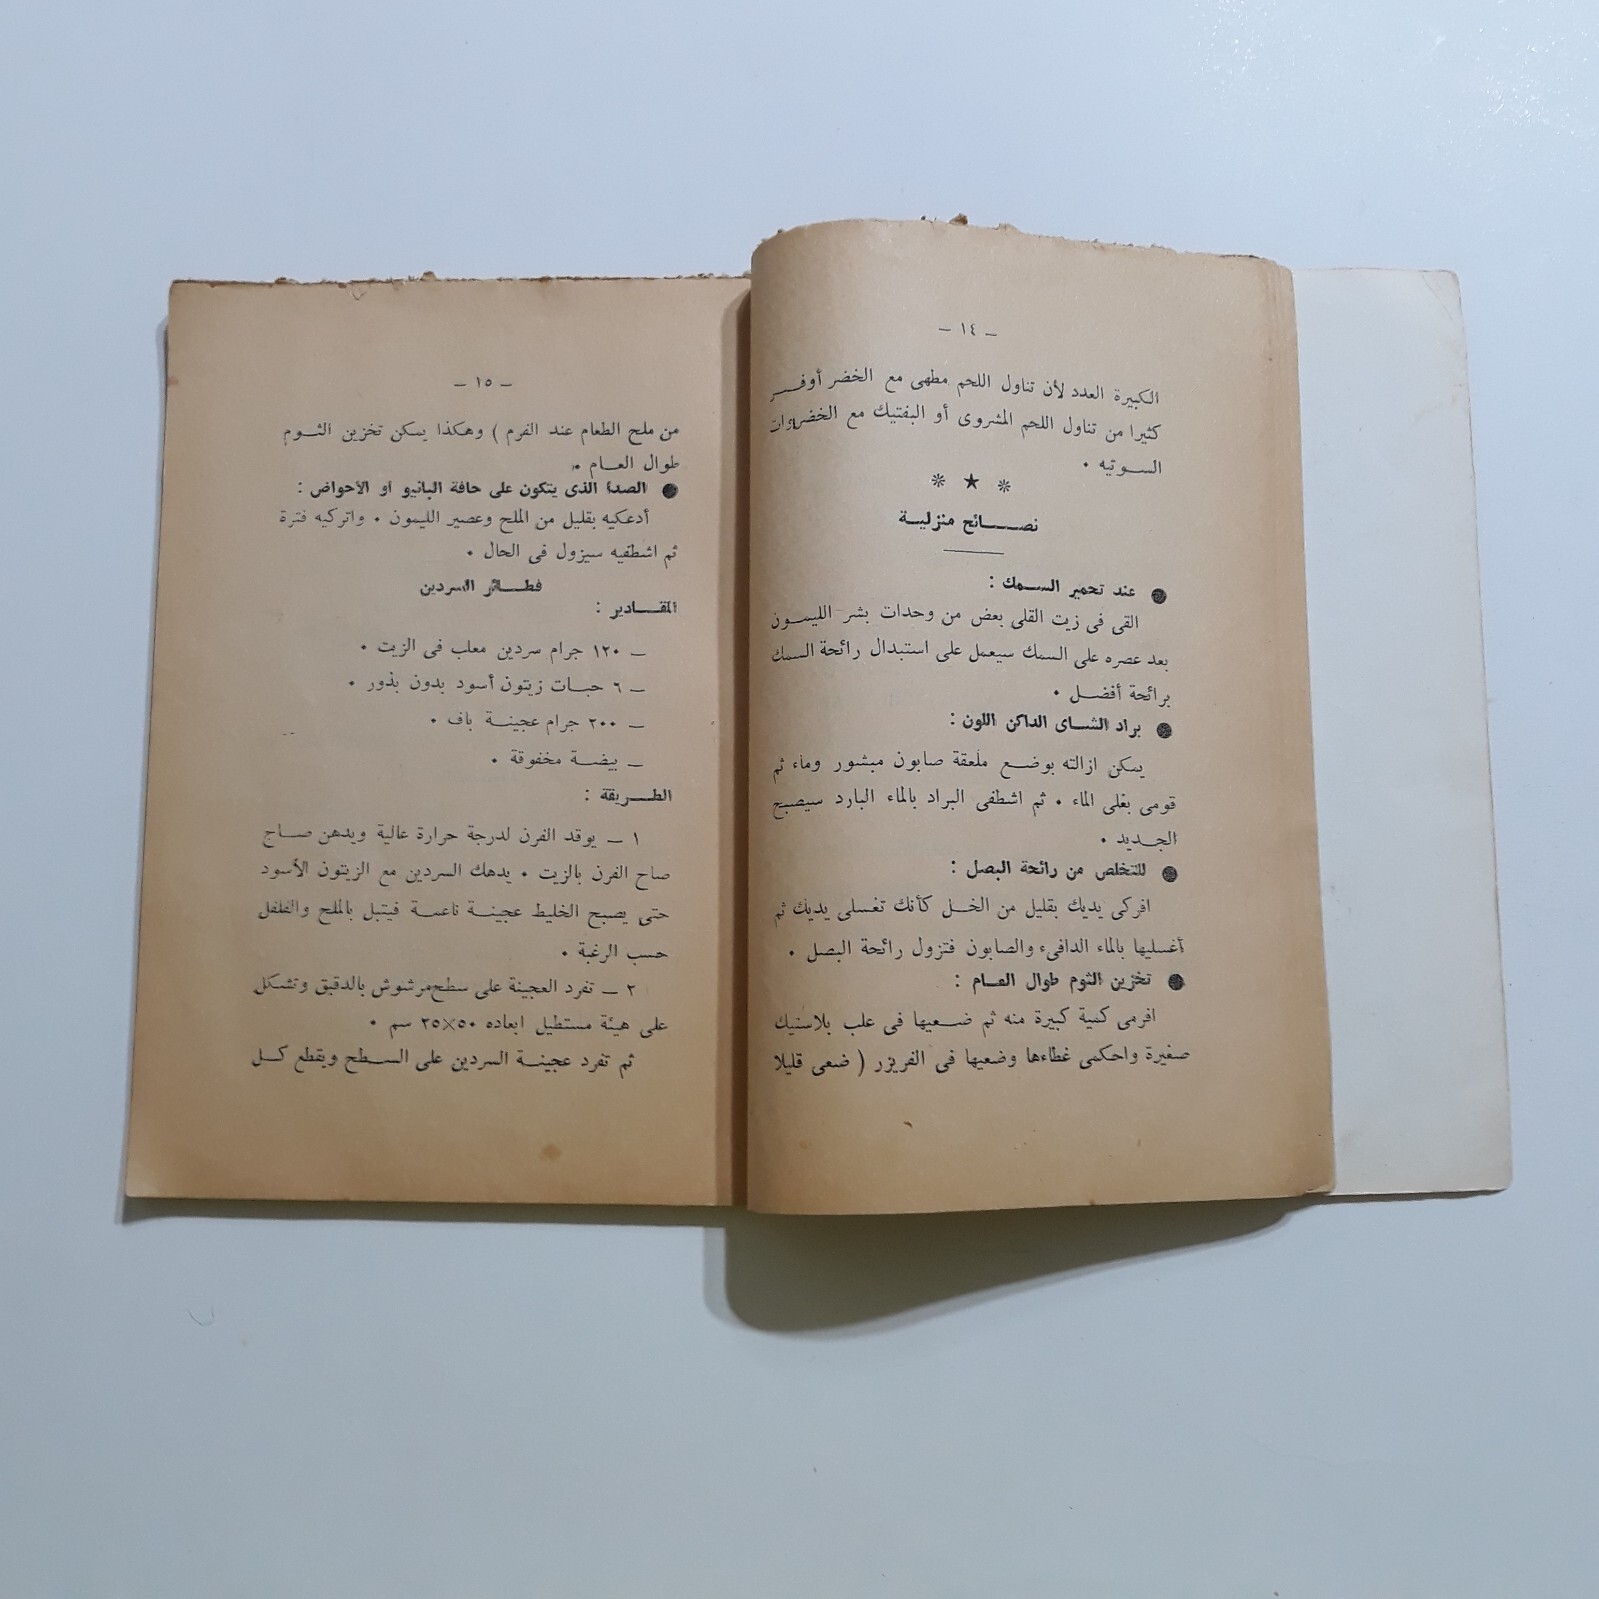 – ١٤ –
الكبيرة العدد لأن تناول اللحم مطهى مع الخضر أوفـــر
كثيرا من تناول اللحم المشروى أو البفتيك مع الخضروات
الســوتيه •
* ★ *
نصـــــائح منزليـــة
● عند تحمير الســـمك :
القى فى زيت القلى بعض من وحدات بشر الليمــون
بعد عصره على السمك سيعمل على استبدال رائحة السمك
برائحة أفضــل •
● براد الشـــاى الداكن اللون :
يمكن ازالته بوضع ملعقة صابون مبشور وماء ثم
قومى بغلى الماء • ثم اشطفى البراد بالماء البارد سيصبح
الجــديد •
● للتخلص من رائحة البصل :
افركى يديك بقليل من الخــل كأنك تغسلى يديك ثم
أغسليها بالماء الدافىء والصابون فتزول رائحة البصل •
● تخزين الثوم طوال العــام :
افرمى كمية كبيرة منه ثم ضــعيها فى علب بلاستيك
صغيرة واحكمى غطاءها وضعيها فى الفريزر ( ضعى قليلا
– ١٥ –
من ملح الطعام عند الفرم ) وهكذا يمكن تخزين الثــوم
طوال العــام •
● الصدأ الذى يتكون على حافة البانيو أو الأحواض :
أدعكيه بقليل من الملح وعصير الليمون • واتركيه فترة
ثم اشطفيه سيزول فى الحال •
فطـــائر السردين
المقـــادير :
– ١٢٠ جرام سردين معلب فى الزيت •
– ٦ حبـات زيتون أسود بدون بذور •
– ٢٠٠ جرام عجينــة باف •
– بيضــة مخفوقة •
الطـــريقة :
١ – يوقد الفرن لدرجة حرارة عالية ويدهن صــاج
صاح الفرن بالزيت • يدهك السردين مع الزيتون الأسود
حتى يصبح الخليط عجينـة ناعمـة فيتبل بالملح والفلفل
حسب الرغبة •
٢ – تفرد العجينة على سطح مرشوش بالدقيق وتشكل
على هيئة مستطيل ابعاده ٥٠×٢٥ سم •
ثم تفرد عجينـة السردين على الســطح ويقطع كــل